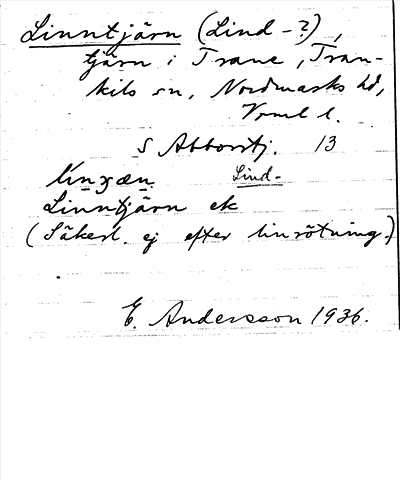 Linntjärn (Lind-?),
tjärn i Trane, Tran-
kils sn, Nordmarks hd,
Vrml l.
S Abborrtj. 13
Lind-
Linntjärn ek
(Säkerl. ej efter linrötning.)
E. Andersson 1936.